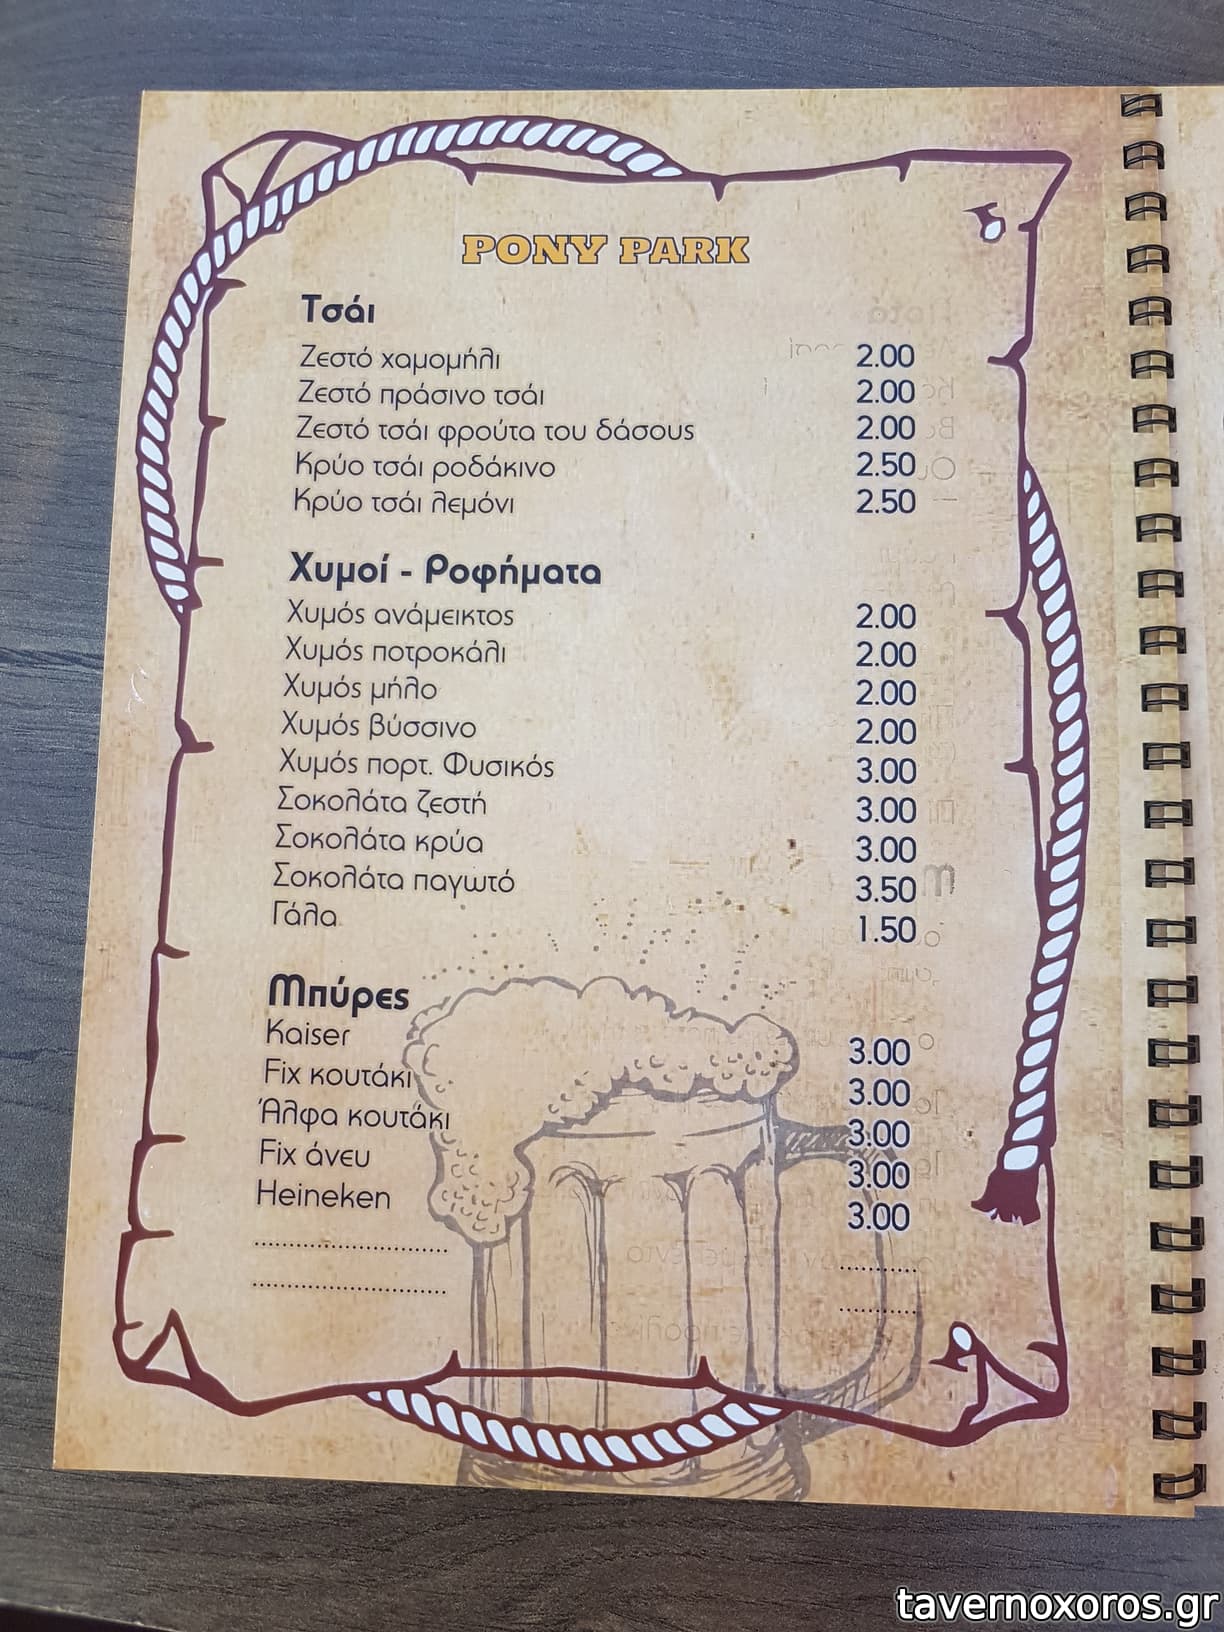 PONY PARK
Τσάι
Ζεστό χαμομήλι 2.00
Ζεστό πράσινο τσάι 2.00
Ζεστό τσάι φρούτα του δάσους 2.00
Κρύο τσάι ροδάκινο 2.50
Κρύο τσάι λεμόνι 2.50
Χυμοί - Ροφήματα
Χυμός ανάμεικτος 2.00
Χυμός ποτροκάλι 2.00
Χυμός μήλο 2.00
Χυμός βύσσινο 2.00
Χυμός πορτ. Φυσικός 3.00
Σοκολάτα ζεστή 3.00
Σοκολάτα κρύα 3.00
Σοκολάτα παγωτό 3.50
Γάλα 1.50
Μπύρες
Kaiser 3.00
Fix κουτάκι 3.00
Άλφα κουτάκι 3.00
Fix άνευ 3.00
Heineken 3.00
tavernoxoros.gr